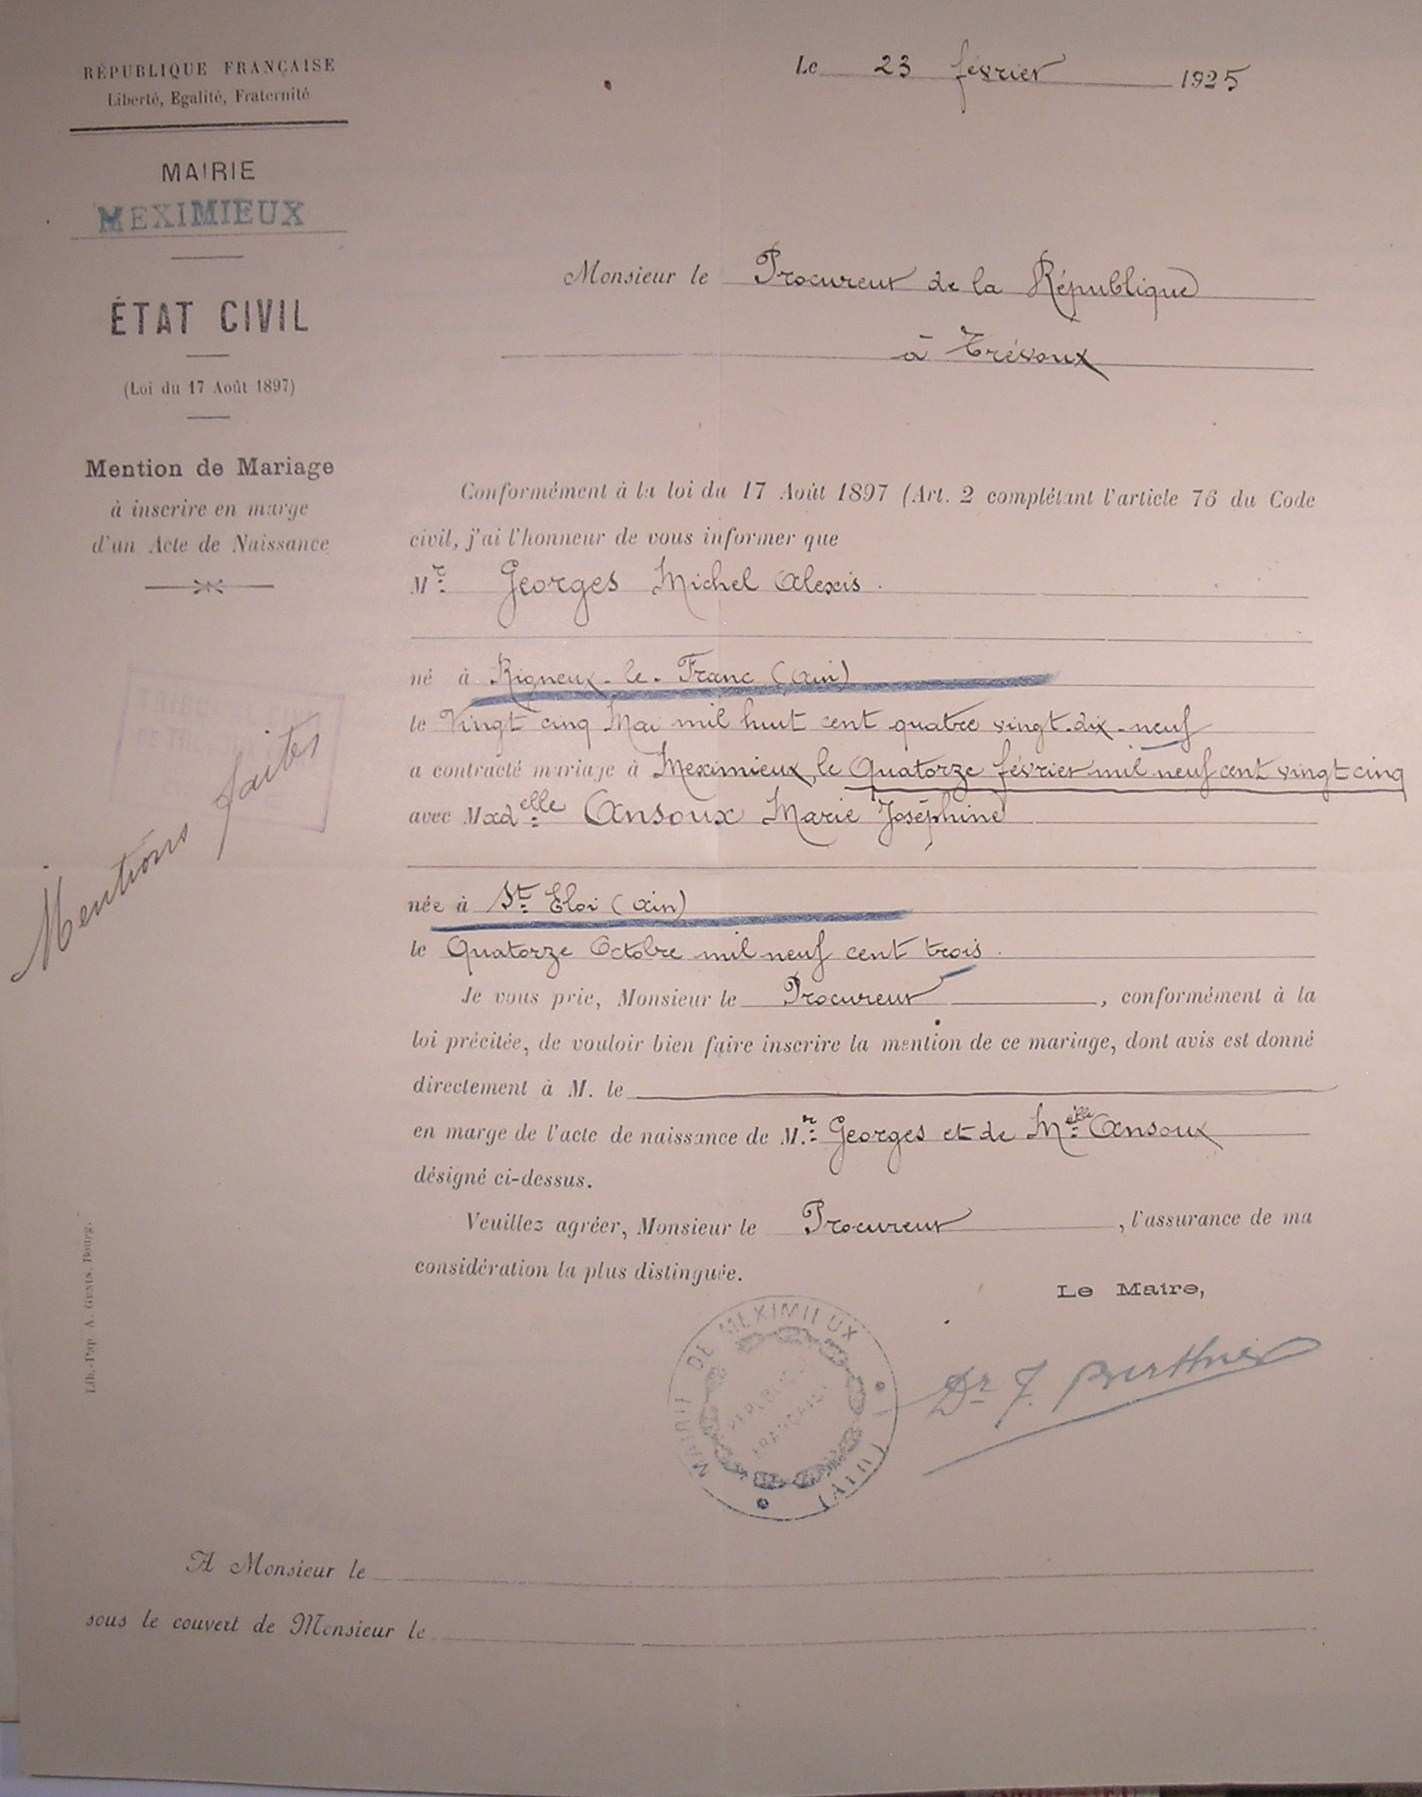 RÉPUBLIQUE FRANÇAISE
Liberté, Egalité, Fraternité
MAIRIE
MEXIMIEUX
ÉTAT CIVIL
(Loi du 17 Août 1897)
Mention de Mariage
à inscrire en marge
d'un Acte de Naissance
Mentions faites
Lib.-Pap. A. Bourg.
Le 23 février 1925
Monsieur le Procureur de la République
à Trévoux
Conformément à la loi du 17 Août 1897 (Art. 2 complétant l'article 76 du Code
civil, j'ai l'honneur de vous informer que
Mr Georges Michel Alexis.
né à Rigneux-le-Franc (Ain)
le Vingt cinq Mai mil huit cent quatre vingt-dix-neuf
a contracté mariage à Meximieux, le Quatorze février mil neuf cent vingt cinq
avec Madelle Ansoux Marie Joséphine
née à St Eloi (Ain)
le Quatorze Octobre mil neuf cent trois.
Je vous prie, Monsieur le Procureur, conformément à la
loi précitée, de vouloir bien faire inscrire la mention de ce mariage, dont avis est donné
directement à M. le
en marge de l'acte de naissance de M.r Georges et de Melle Ansoux
désigné ci-dessus.
Veuillez agréer, Monsieur le Procureur, l'assurance de ma
considération la plus distinguée.
Le Maire,
MAIRIE DE MEXIMIEUX
RÉPUBLIQUE
FRANÇAISE
(AIN)
Dr J. Berthier
A Monsieur le
sous le couvert de Monsieur le